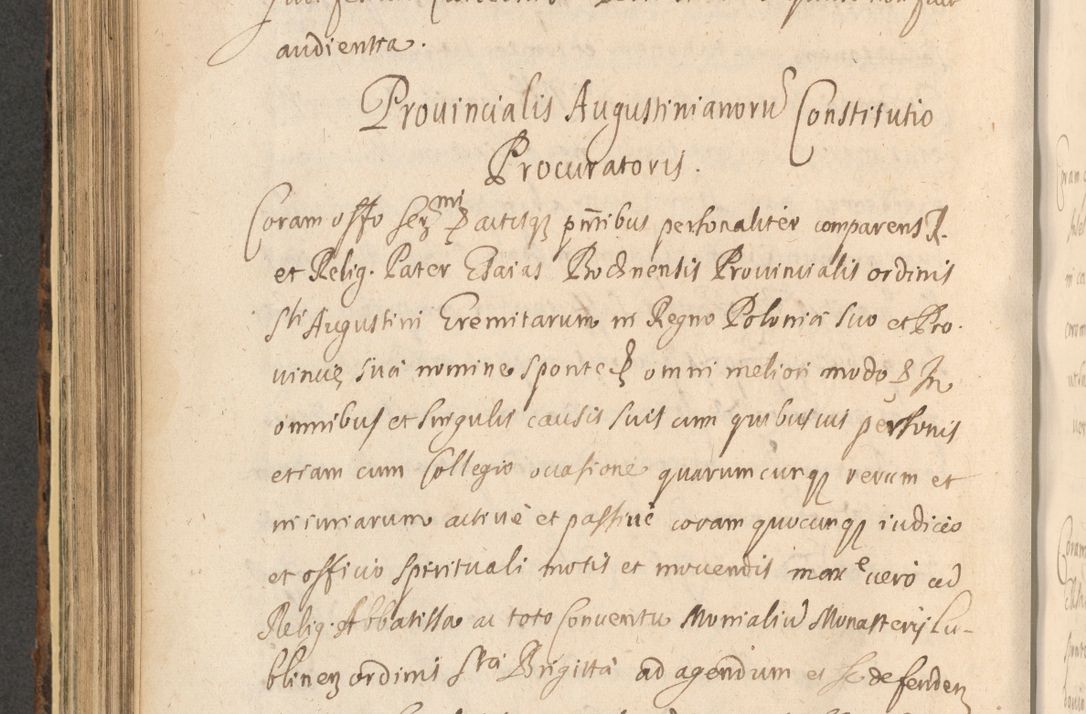 audientia.
Provincialis Augustinianorũ Constitutio
Procuratoris.
Coram offo Ser̃mi actisq pñtibus personaliter comparens R.
et Relig. Pater Esaias Bochnensis Prouincialis ordinis
Sti Augustini Eremitarum in Regno Polonia suo et Pro-
uincię sua nomine sponte omni meliori modo & In
omnibus et singulis causis suis cum quibusuis personis
etiam cum Collegio occasione quarumcunq rerum et
iniuriarum actiue et passiue coram quocunq iudicio
et officio spirituali motis et mouendis maxe vero ad
Relig. Abbatissa ac toto Conventu Monialiũ Monasterij Lu-
blinen ordinis Sta Brigitta ad agendum et se defenden